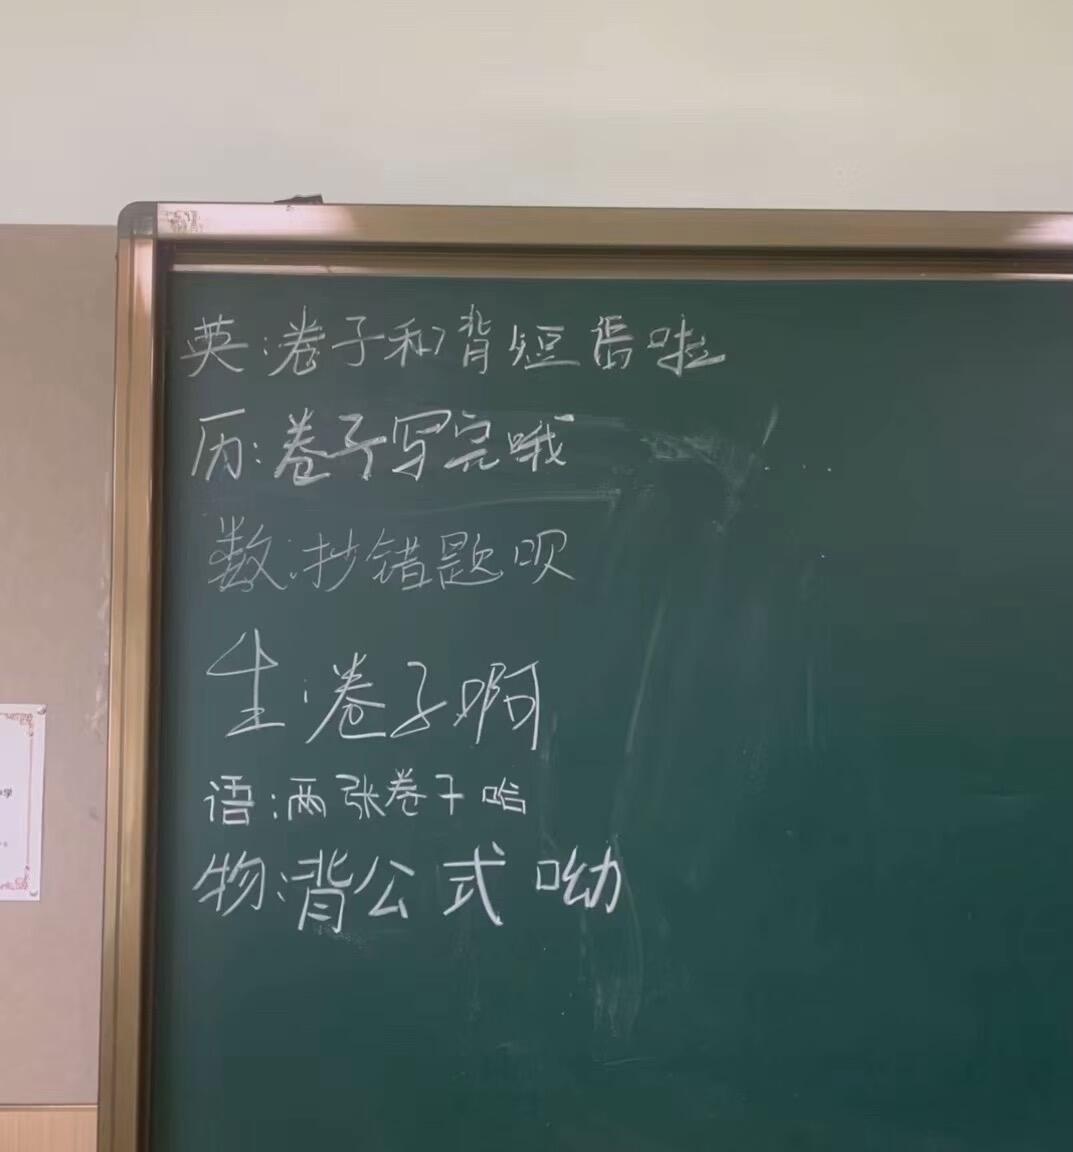 英:卷子和背短语啦
历:卷子写完哦
数:抄错题呗
生:卷子啊
语:两张卷子哈
物:背公式呦